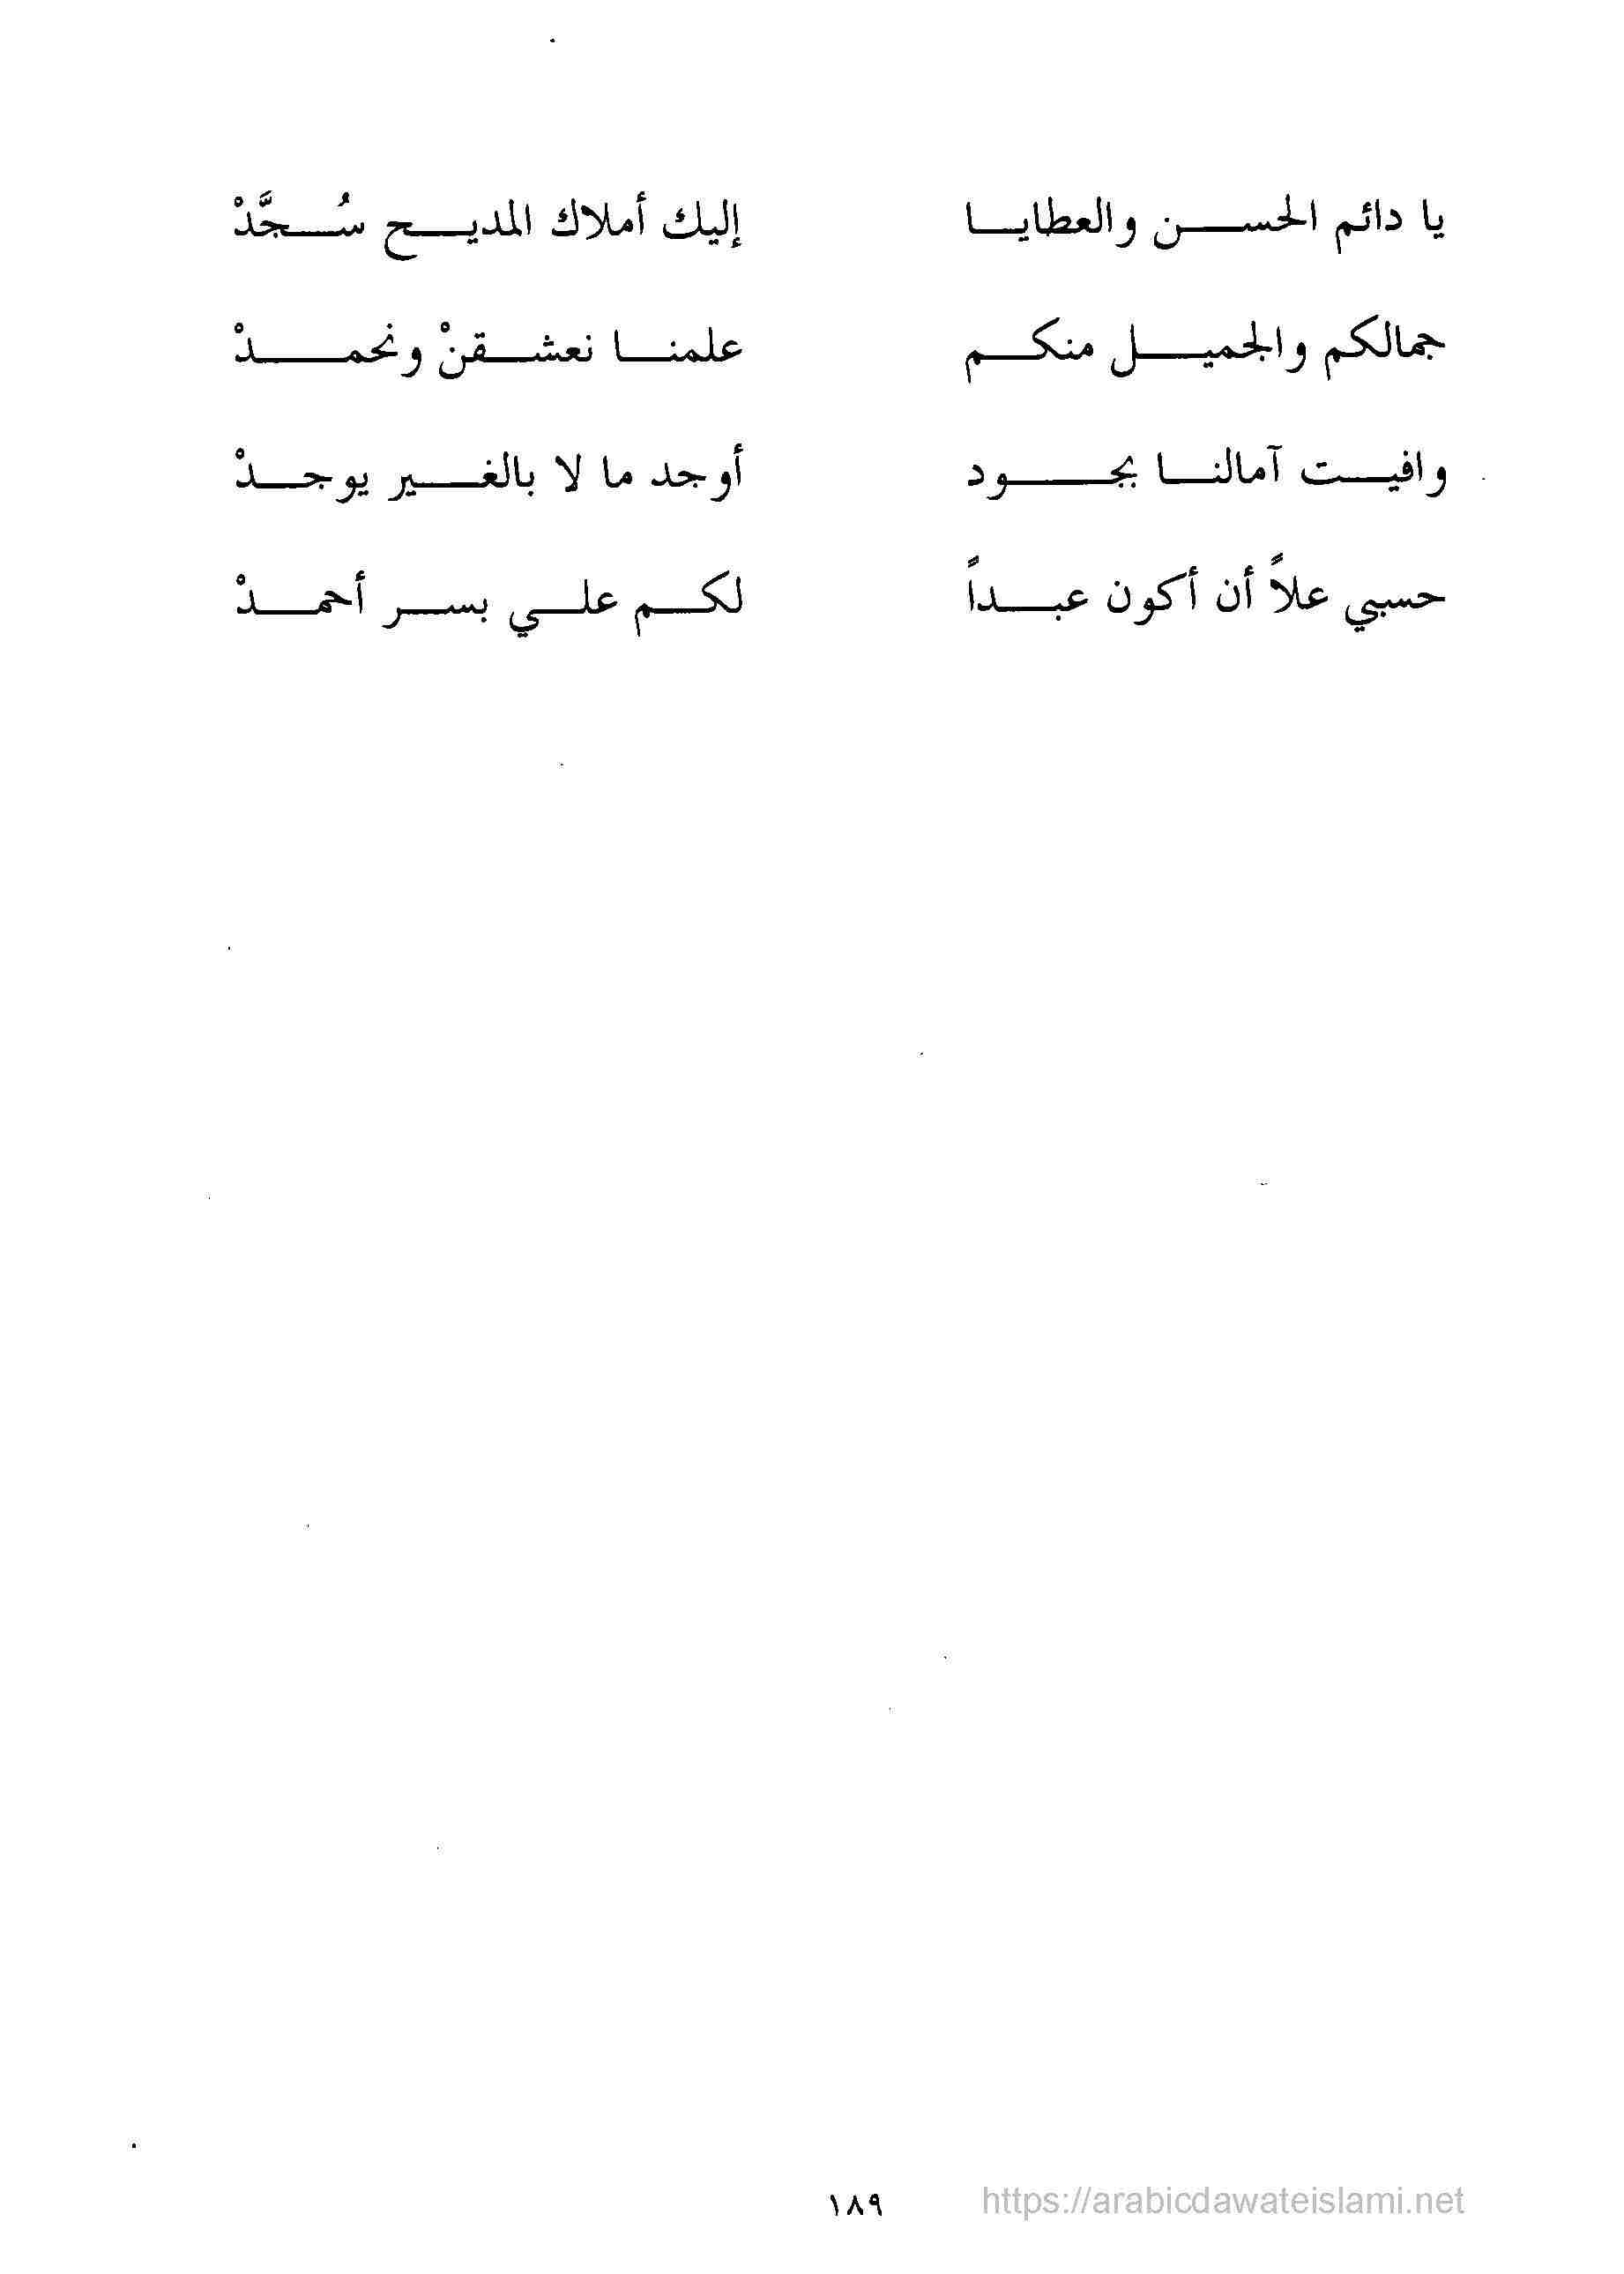 يا دائم الحسن والعطايا إليك أملاك المديح سُجَّدْ
جمالكم والجميل منكم علمنا نعشقنْ ونحمدْ
وافيت آمالنا بجود أوجد ما لا بالغير يوجدْ
حسبي علاً أن أكون عبداً لكم علي بسر أحمدْ
١٨٩ https://arabicdawateislami.net